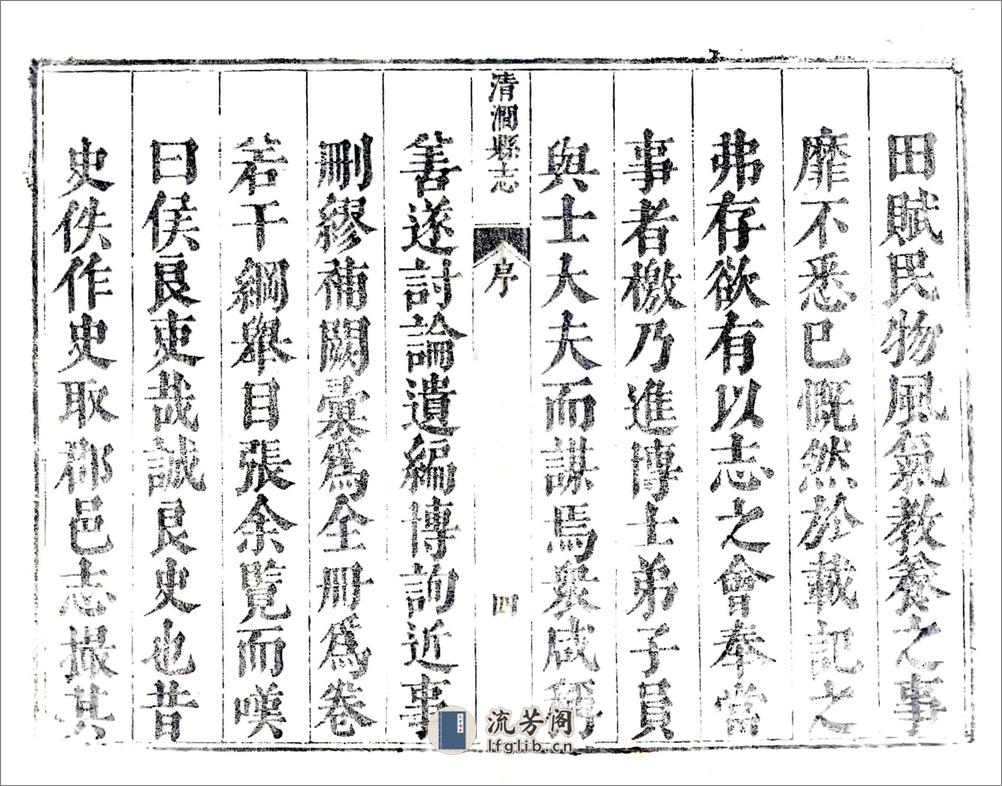 田賦民物風氣教養之事
靡不悉已慨然於載記之
弗存欲有以志之會奉當
事者檄乃進博士弟子員
與士大夫而謀焉衆咸稱
清澗縣志
序
四
善遂討論遺編博詢近事
刪繆補闕彙爲全冊爲卷
若干綱舉目張余覽而嘆
曰侯良吏哉誠良史也昔
史佚作史取郡邑志撮其
流芳阁
lfglib.cn